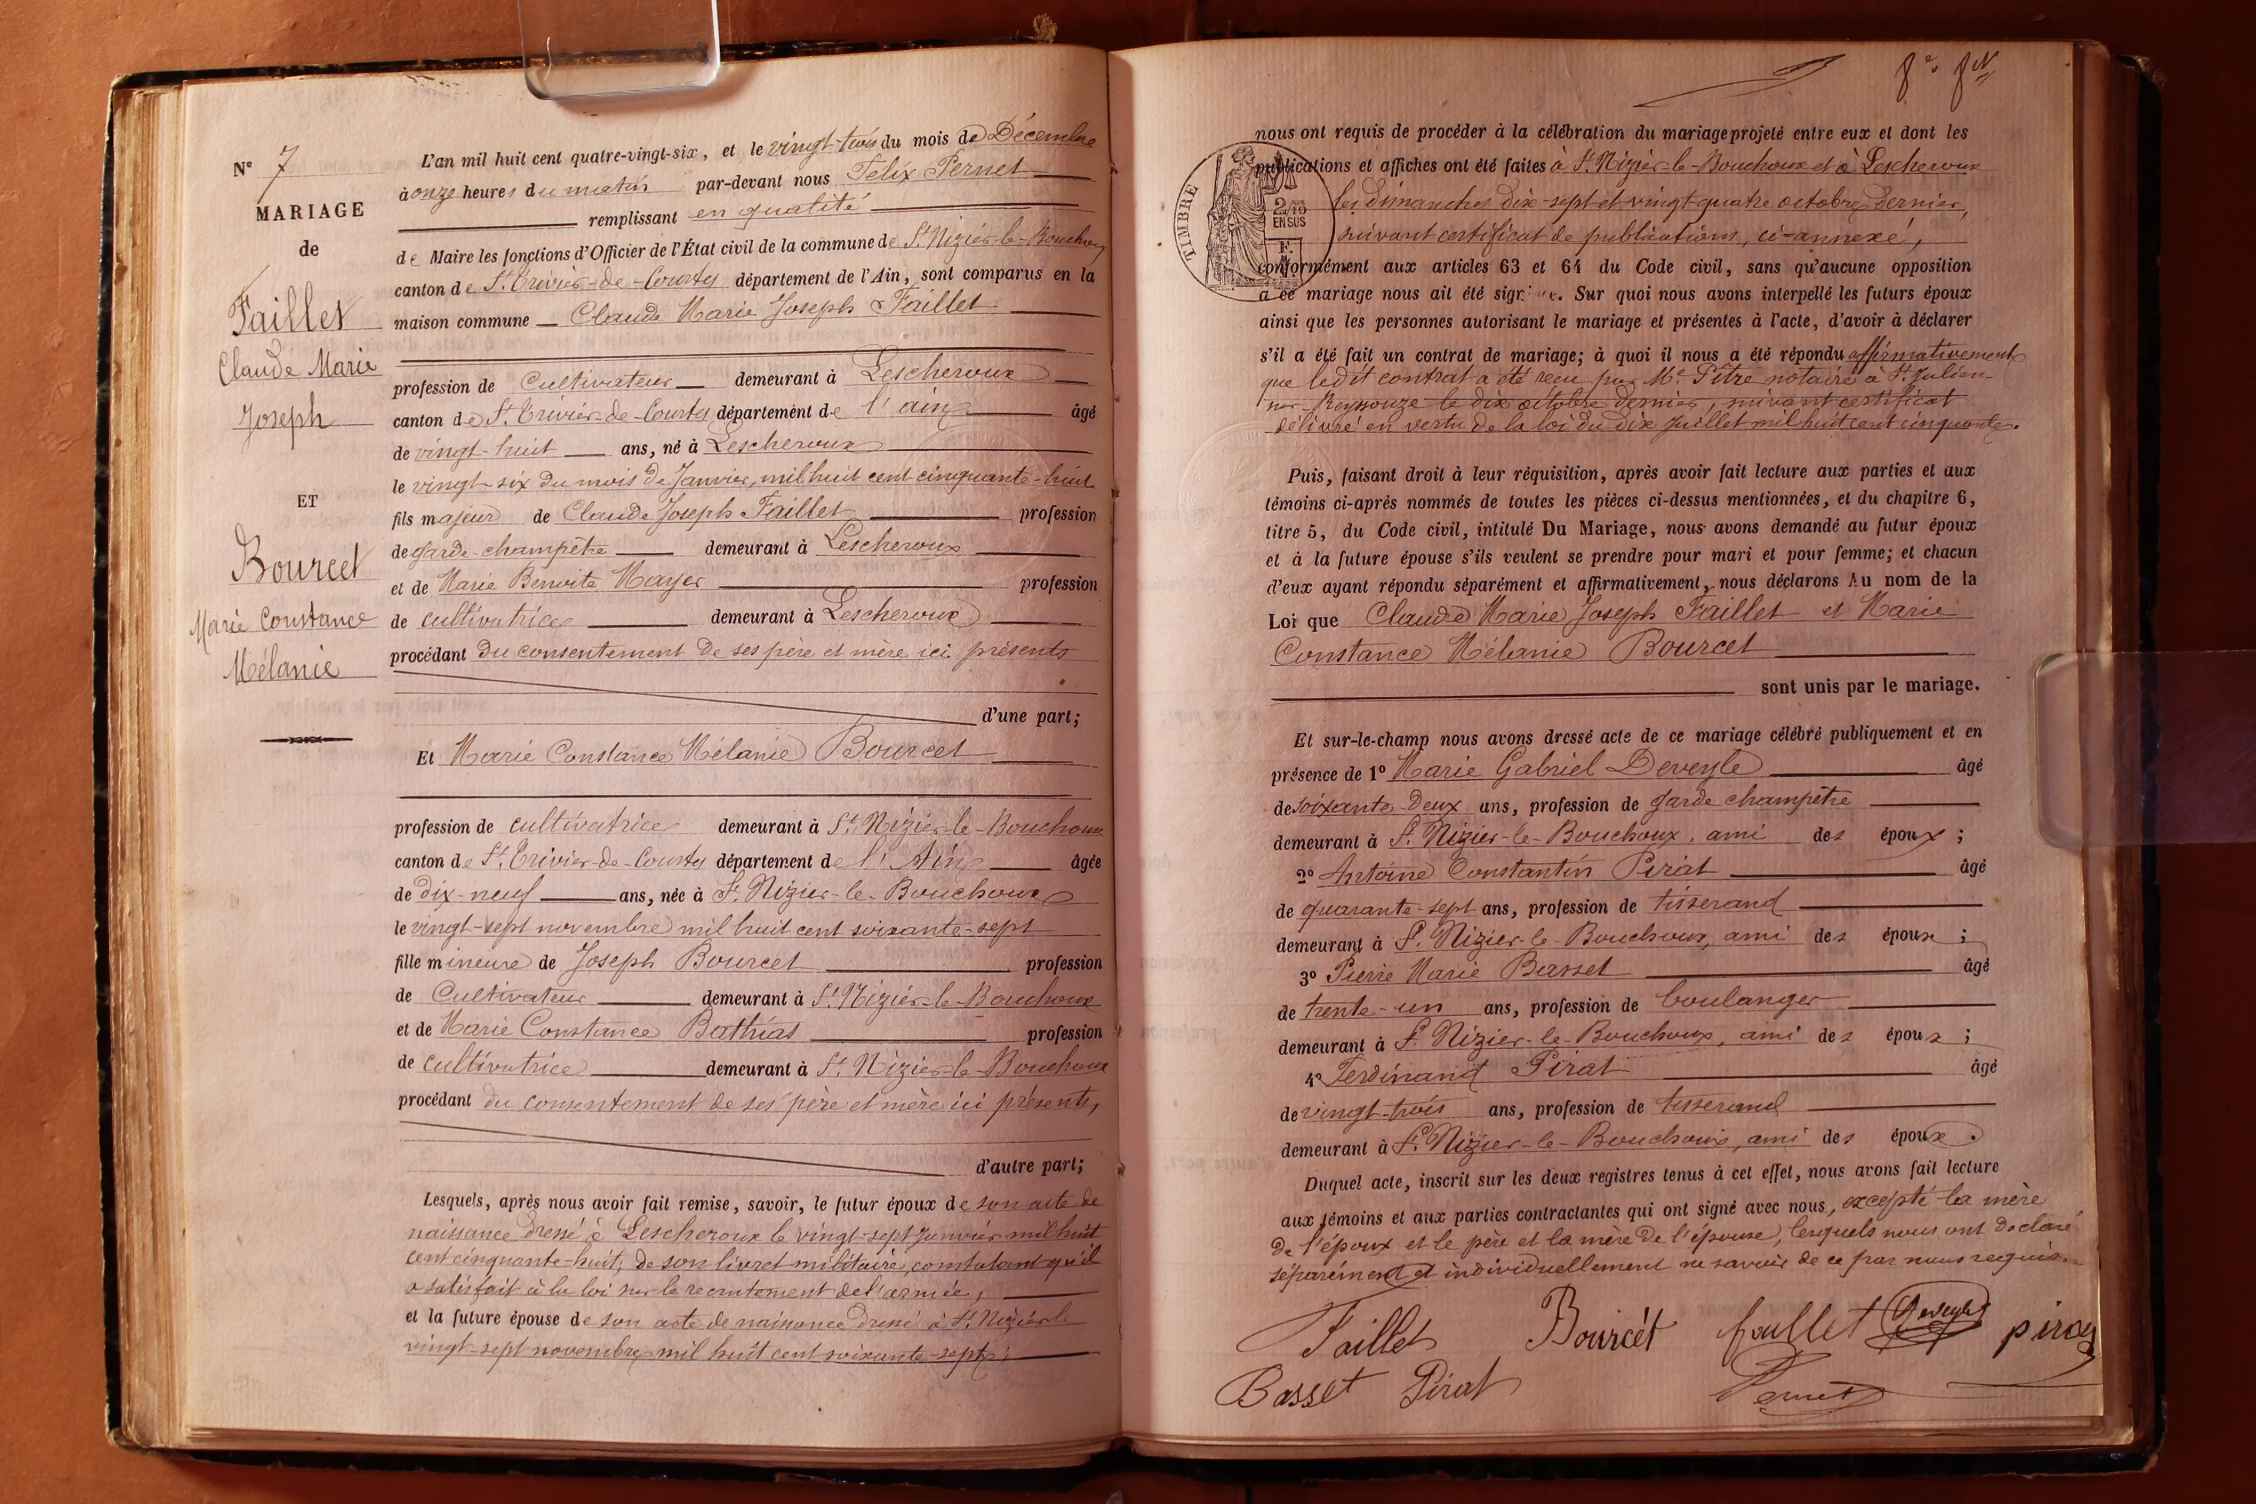 N° 7
MARIAGE
de
Faillet
Claude Marie
Joseph
ET
Bourcet
Marie Constance
Mélanie
L'an mil huit cent quatre-vingt-six, et le vingt-trois du mois de Décembre
à onze heures du matin par-devant nous Félix Pernet
remplissant en qualité
de Maire les fonctions d'Officier de l'État civil de la commune de St Nizier-le-Bouchoux
canton de St Trivier-de-Courtes département de l'Ain, sont comparus en la
maison commune Claude Marie Joseph Faillet
profession de Cultivateur demeurant à Lescheroux
canton de St Trivier-de-Courtes département de l'ain âgé
de vingt-huit ans, né à Lescheroux
le vingt-six du mois de Janvier, mil huit cent cinquante-huit
fils majeur de Claude Joseph Faillet profession
de garde-champêtre demeurant à Lescheroux
et de Marie Benoite Mayer profession
de cultivatrice demeurant à Lescheroux
procédant du consentement de ses père et mère ici présents
d'une part;
Et Marie Constance Mélanie Bourcet
profession de cultivatrice demeurant à St Nizier-le-Bouchoux
canton de St Trivier-de-Courtes département de l'Ain âgée
de dix-neuf ans, née à St Nizier-le-Bouchoux
le vingt-sept novembre mil huit cent soixante-sept
fille mineure de Joseph Bourcet profession
de Cultivateur demeurant à St Nizier-le-Bouchoux
et de Marie Constance Bathias profession
de cultivatrice demeurant à St Nizier-le-Bouchoux
procédant du consentement de ses père et mère ici présents,
d'autre part;
Lesquels, après nous avoir fait remise, savoir, le futur époux de son acte de
naissance dressé à Lescheroux le vingt-sept Janvier mil huit
cent cinquante-huit, de son livret militaire, constatant qu'il
a satisfait à la loi sur le recrutement de l'armée,
et la future épouse de son acte de naissance dressé à St Nizier le
vingt-sept novembre mil huit cent soixante-sept;
nous ont requis de procéder à la célébration du mariage projeté entre eux et dont les
publications et affiches ont été faites à St Nizier-le-Bouchoux et à Lescheroux
les dimanches dix-sept et vingt-quatre octobre dernier,
suivant certificat de publications, ci-annexé,
TIMBRE
2/10
EN SUS
conformément aux articles 63 et 64 du Code civil, sans qu'aucune opposition
à ce mariage nous ait été signifiée. Sur quoi nous avons interpellé les futurs époux
ainsi que les personnes autorisant le mariage et présentes à l'acte, d'avoir à déclarer
s'il a été fait un contrat de mariage; à quoi il nous a été répondu affirmativement
que ledit contrat a été reçu par Me Pitre notaire à St Julien-
sur-Reyssouze le dix octobre dernier, suivant certificat
délivré en vertu de la loi du dix juillet mil huit cent cinquante.
Puis, faisant droit à leur réquisition, après avoir fait lecture aux parties et aux
témoins ci-après nommés de toutes les pièces ci-dessus mentionnées, et du chapitre 6,
titre 5, du Code civil, intitulé Du Mariage, nous avons demandé au futur époux
et à la future épouse s'ils veulent se prendre pour mari et pour femme; et chacun
d'eux ayant répondu séparément et affirmativement, nous déclarons Au nom de la
Loi que Claude Marie Joseph Faillet et Marie
Constance Mélanie Bourcet
sont unis par le mariage.
Et sur-le-champ nous avons dressé acte de ce mariage célébré publiquement et en
présence de 1° Marie Gabriel Deveyle âgé
de soixante-deux ans, profession de garde champêtre
demeurant à St Nizier-le-Bouchoux, ami des époux;
2° Antoine Constantin Pirat âgé
de quarante-sept ans, profession de tisserand
demeurant à St Nizier-le-Bouchoux, ami des époux;
3° Pierre Marie Basset âgé
de trente-un ans, profession de boulanger
demeurant à St Nizier-le-Bouchoux, ami des époux;
4° Ferdinand Pirat âgé
de vingt-trois ans, profession de tisserand
demeurant à St Nizier-le-Bouchoux, ami des époux.
Duquel acte, inscrit sur les deux registres tenus à cet effet, nous avons fait lecture
aux témoins et aux parties contractantes qui ont signé avec nous, excepté la mère
de l'époux et le père et la mère de l'épouse, lesquels nous ont déclaré
séparément et individuellement ne savoir de ce par nous requis.
Faillet Bourcet faillet Deveyle pirat
Basset Pirat Pernet